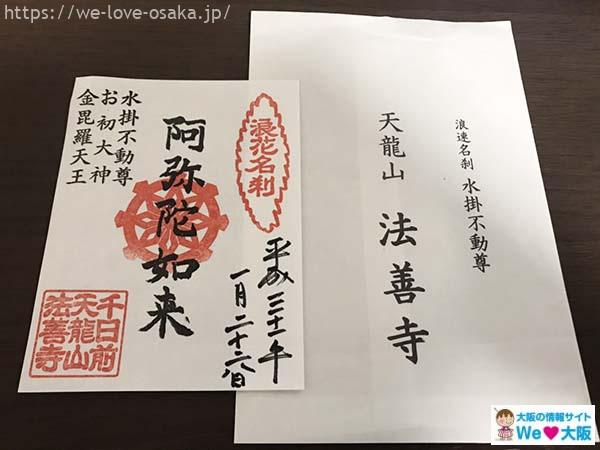 https://we-love-osaka.jp/
浪花名刹
平成三十一年
一月二十六日
阿弥陀如来
水掛不動尊
お初大神
金毘羅天王
千日前
天龍山
法善寺
浪速名刹 水掛不動尊
天龍山 法善寺
大阪の情報サイト
We♥大阪